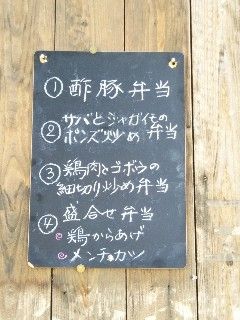 ① 酢豚弁当
② サバとジャガイモの
ポンズ炒め 弁当
③ 鶏肉とゴボウの
細切り炒め弁当
④ 盛合せ弁当
鶏からあげ
メンチカツ